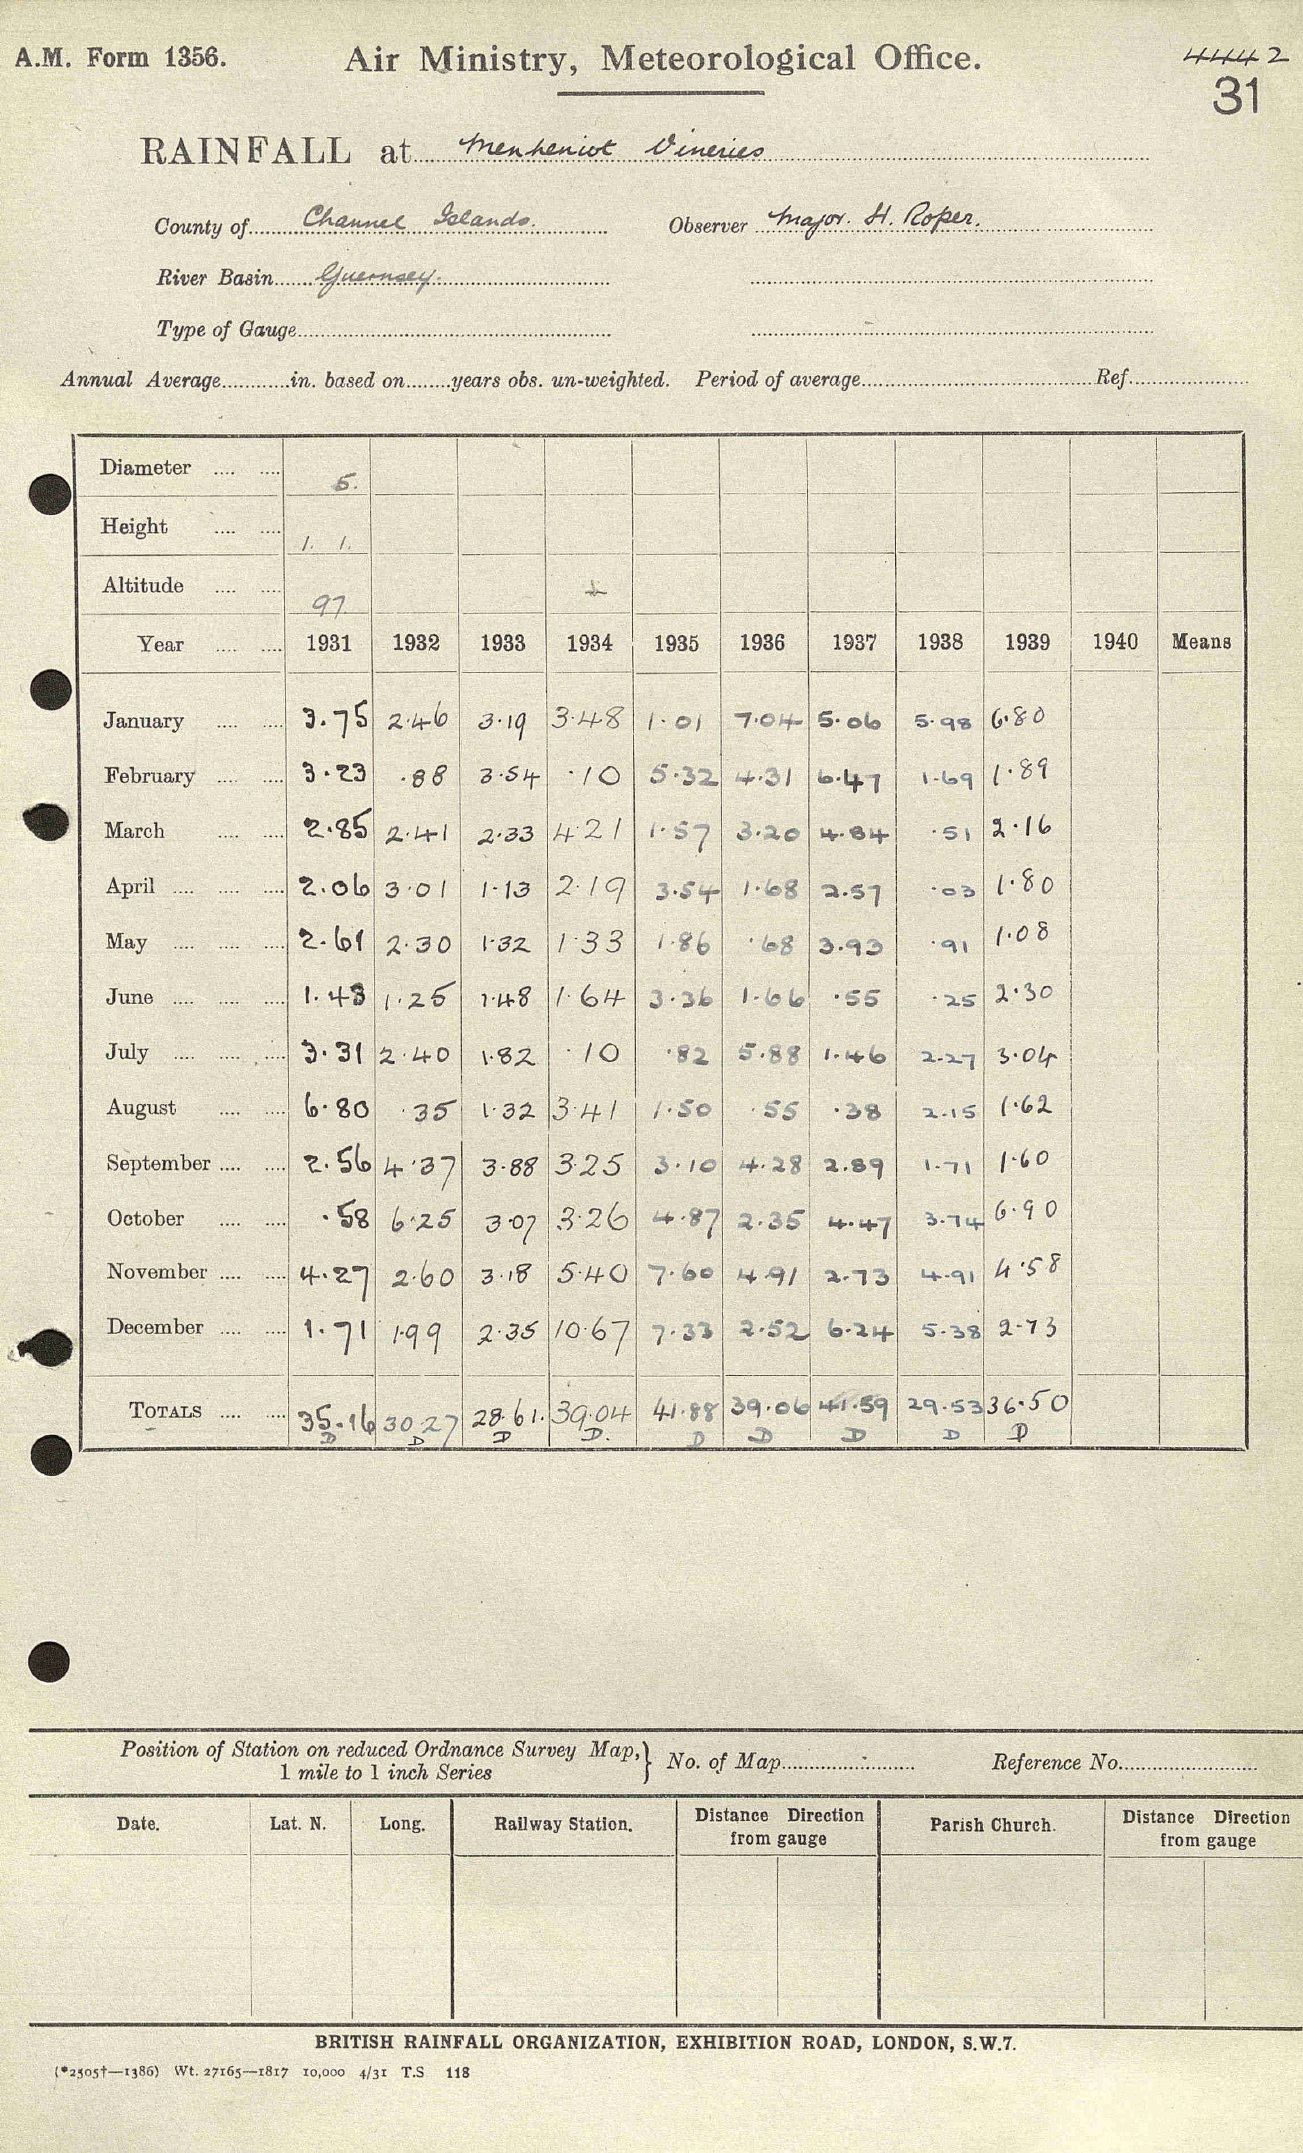 A.M. Form 1356.
Air Ministry, Meteorological Office.
4442
31
RAINFALL at Menheniot Vineries
County of Channel Islands.
Observer Major. H. Roper.
River Basin Guernsey.
Type of Gauge
Annual Average in. based on years obs. un-weighted. Period of average Ref.
Diameter 5.
Height 1. 1.
Altitude 97
Year 1931 1932 1933 1934 1935 1936 1937 1938 1939 1940 Means
January 3.75 2.46 3.19 3.48 1.01 7.04 5.06 5.98 6.80
February 3.23 .88 3.54 .10 5.32 4.31 6.47 1.69 1.89
March 2.85 2.41 2.33 4.21 1.57 3.20 4.84 .51 2.16
April 2.06 3.01 1.13 2.19 3.54 1.68 2.57 .03 1.80
May 2.61 2.30 1.32 1.33 1.86 .68 3.93 .91 1.08
June 1.43 1.25 1.48 1.64 3.36 1.66 .55 .25 2.30
July 3.31 2.40 1.82 .10 .82 5.88 1.46 2.27 3.04
August 6.80 .35 1.32 3.41 1.50 .55 .38 2.15 1.62
September 2.56 4.37 3.88 3.25 3.10 4.28 2.89 1.71 1.60
October .58 6.25 3.07 3.26 4.87 2.35 4.47 3.74 6.90
November 4.27 2.60 3.18 5.40 7.60 4.91 2.73 4.91 4.58
December 1.71 1.99 2.35 10.67 7.33 2.52 6.24 5.38 2.73
TOTALS 35.16 30.27 28.61. 39.04 41.88 39.06 41.59 29.53 36.50
D D D D. D D D D D
Position of Station on reduced Ordnance Survey Map,
1 mile to 1 inch Series
No. of Map
Reference No.
Date. Lat. N. Long. Railway Station. Distance Direction from gauge Parish Church. Distance Direction from gauge
BRITISH RAINFALL ORGANIZATION, EXHIBITION ROAD, LONDON, S.W.7.
(*2505†—1386) Wt. 27165—1817 10,000 4/31 T.S 118